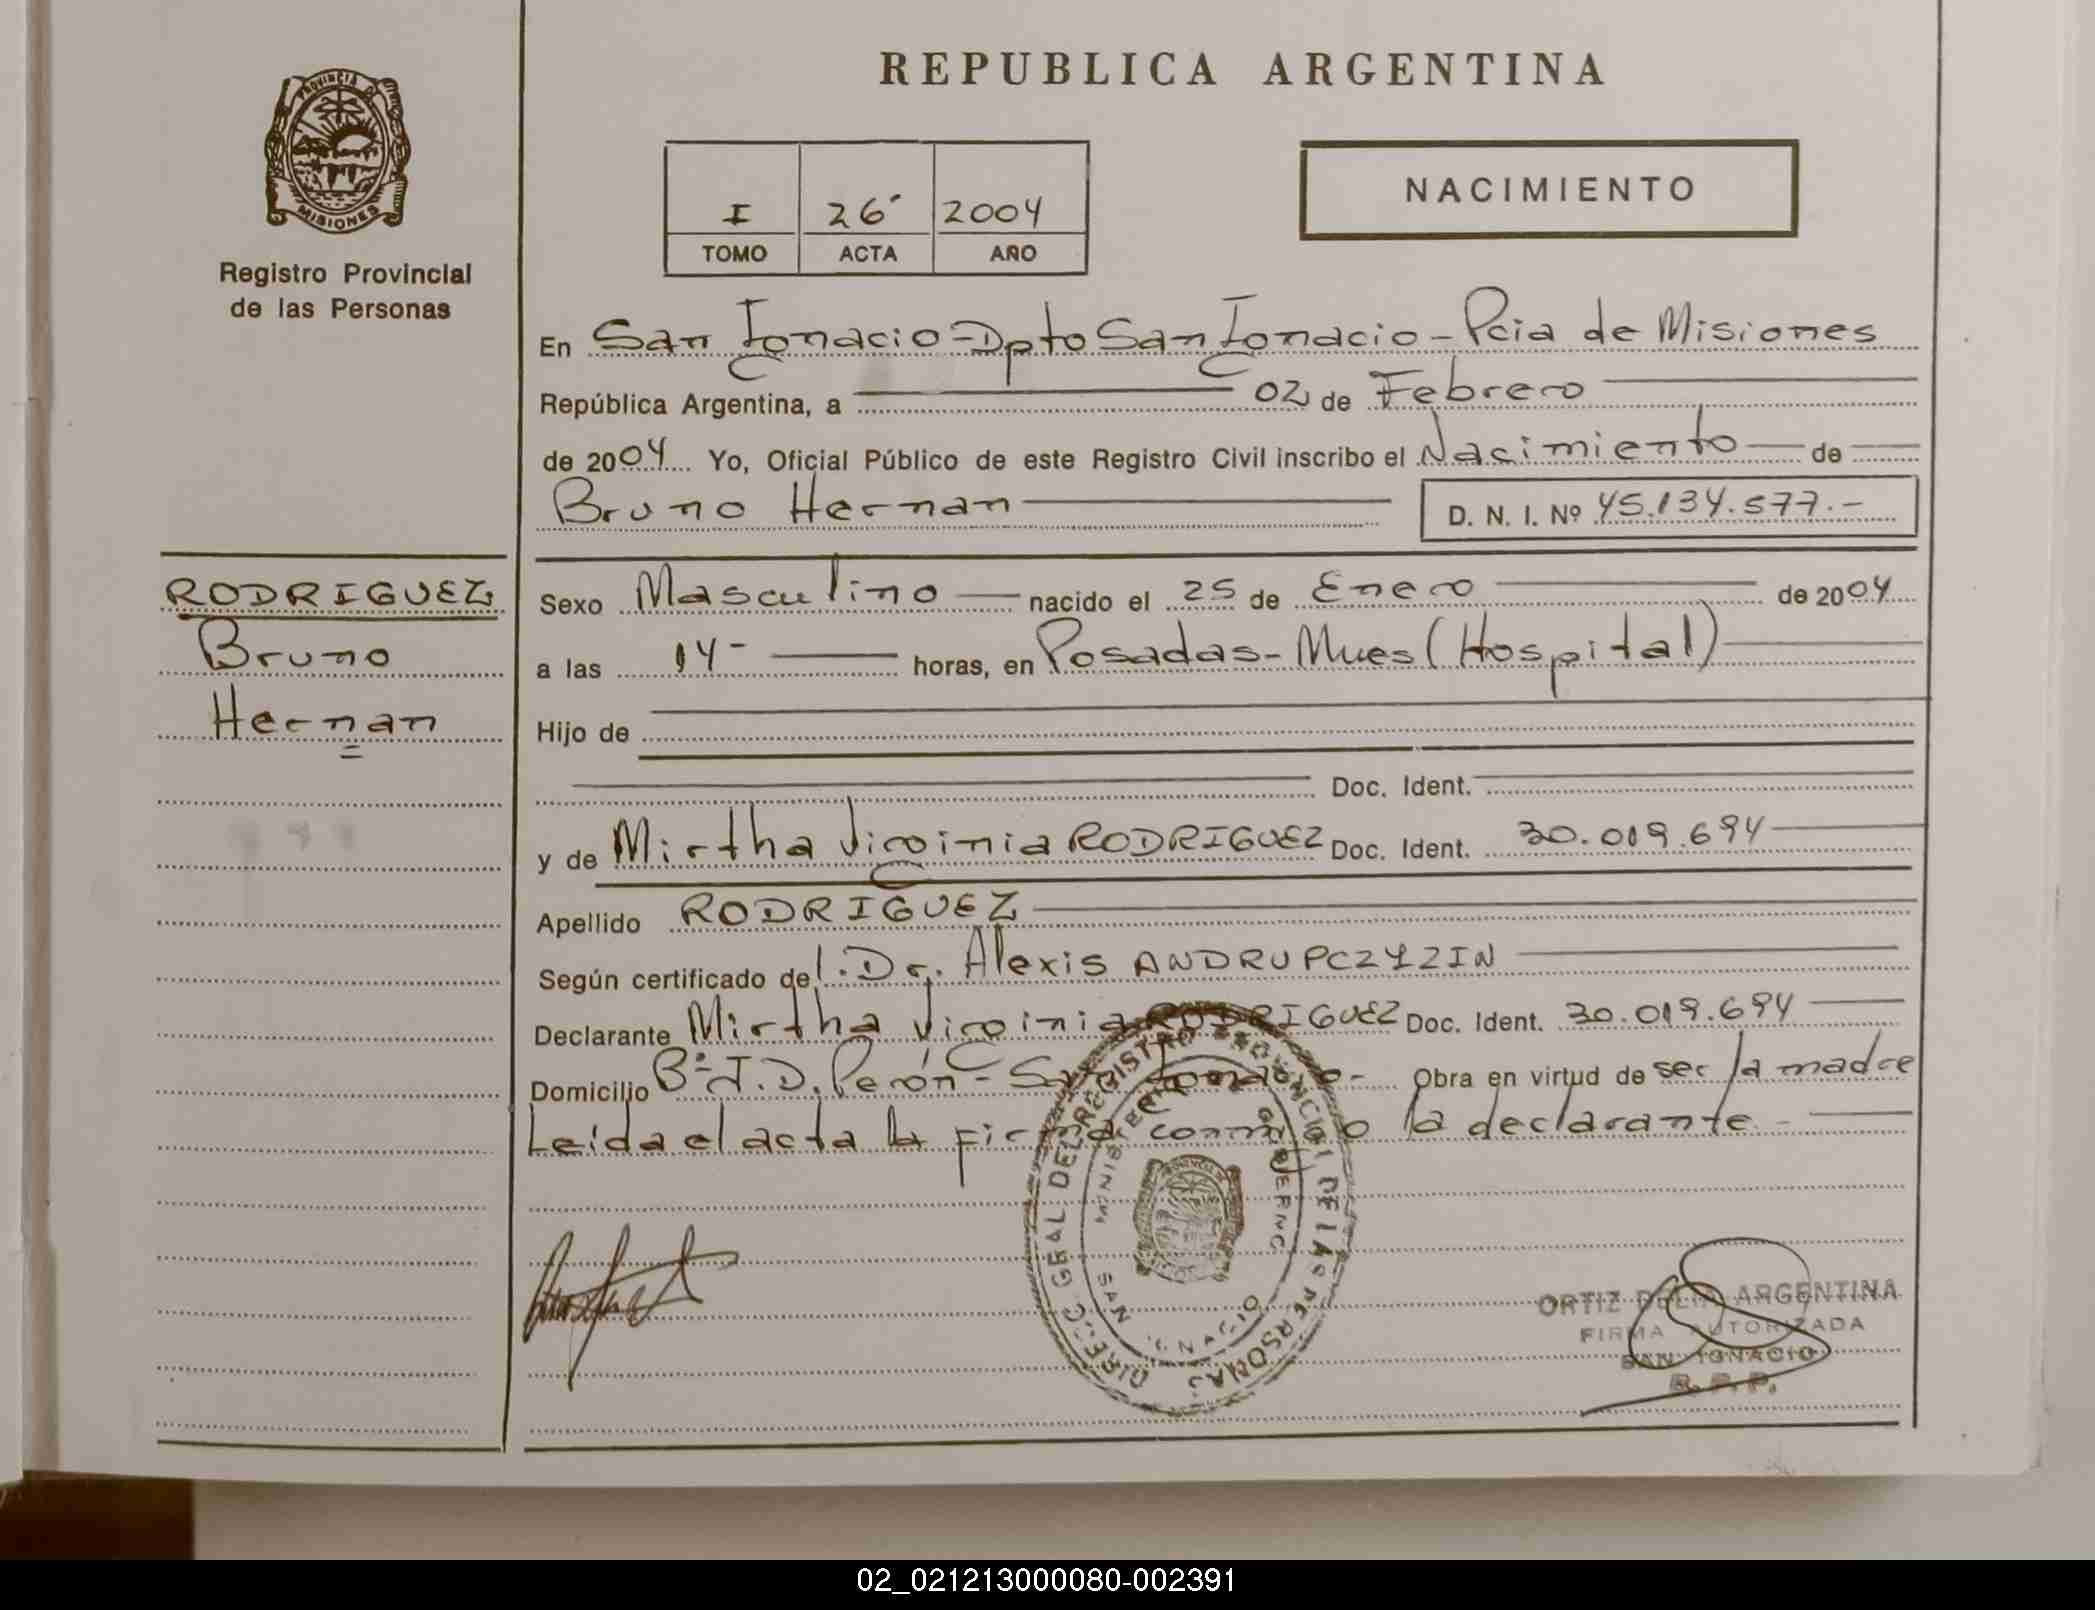 REPUBLICA ARGENTINA
PROVINCIA DE
MISIONES
Registro Provincial
de las Personas
I 26 2004
TOMO ACTA AÑO
NACIMIENTO
En San Ignacio - Dpto San Ignacio - Pcia de Misiones
República Argentina, a 02 de Febrero
de 2004 Yo, Oficial Público de este Registro Civil inscribo el Nacimiento de
Bruno Hernan D. N. I. Nº 45.134.577.-
RODRIGUEZ
Bruno
Hernan
Sexo Masculino nacido el 25 de Enero de 2004
a las 14- horas, en Posadas - Mnes (Hospital)
Hijo de
Doc. Ident.
y de Mirtha Virginia RODRIGUEZ Doc. Ident. 30.019.694
Apellido RODRIGUEZ
Según certificado del. Dr. Alexis ANDRUPCZYZIN
Declarante Mirtha Virginia RODRIGUEZ Doc. Ident. 30.019.694
Domicilio Bº J.D. Perón - San Ignacio - Obra en virtud de ser la madre
Leida el acta la firma conmigo la declarante -
DIRECC GRAL DEL REGISTRO PROVINCIAL DE LAS PERSONAS
MINISTERIO GOBIERNO
SAN IGNACIO
ORTIZ DELIA ARGENTINA
FIRMA AUTORIZADA
SAN IGNACIO
R. P. P.
02_021213000080-002391